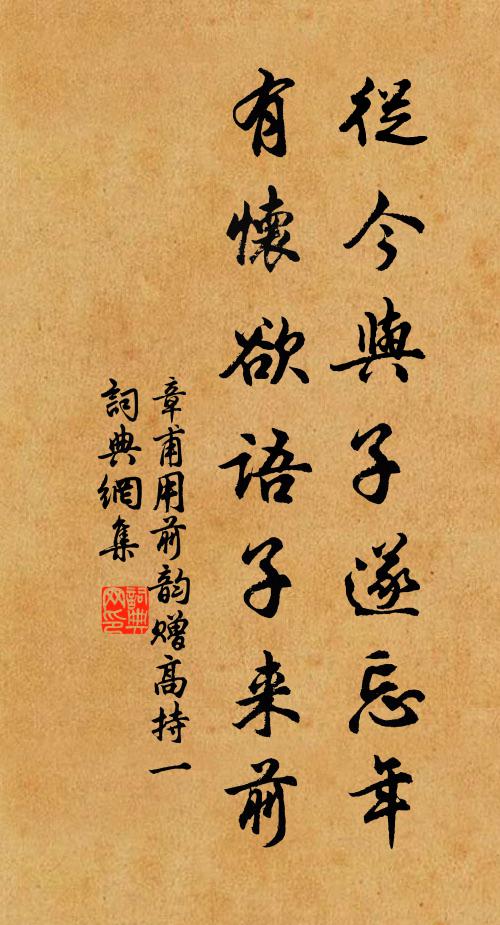 從今與子遂忘年
有懷欲語子来前
章甫用前韵赠高持一
詞典網集
詞典网印